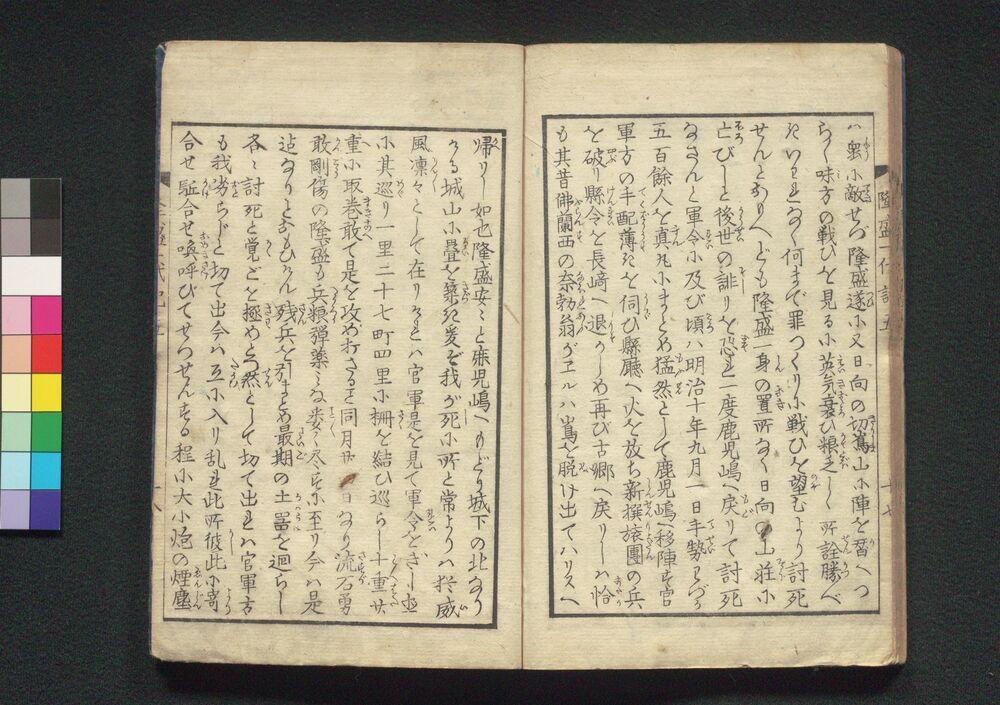 ハ蜜小敵せバ隆盛遂小又日向の切嶌山小陣を替へつ
らく味方の戦ひを見る小英気衰ひ粮乏しく所詮勝べ
きいわれなく何まで罪つくり小戦ひを望むより討死
せんとおもへども隆盛一身の置所なく日向の山荘小
亡びしと後世の誹りを恐れ一度鹿児嶋へ戻りて討死
なさんと軍令小及び頃ハ明治十年九月一日手勢わづか
五百餘人を真丸小まとめ猛然として鹿児嶋へ移陣す官
軍方の手配薄きを伺ひ縣廳へ火を放ち新撰旅團の兵
を破り縣令を長﨑へ退かしめ再び古郷へ戻りしハ恰
も其昔佛蘭西の奈勃翁がヱルバ嶌を脱け出てハリスへ
隆盛代記五
十七
帰りし如也隆盛安々と麻児嶋へもどり城下の北なり
ける城山小疊を築き爰ぞ我が死小所と常よりハ猶威
風凛々として在りけれハ官軍是を見て軍令をきしめ
小其巡り一里二十七町四里小柵を結ひ巡らし十重廿
重小取巻敢て是を攻め打さる
同月廿 日なり流石勇
敢剛傷の隆盛も兵粮弾薬みな婁々尽き小至り今ハ是
迠なりとおもひけん残兵を引まとめ最期の土噐を廻らし
各々討死と覚ごを極めとつ然として切て出れハ官軍方
も我劣らじと切て出今ハ互小入り乱れ此所彼此小寄
合せ駈合せ喚呼びてせつせんする程小大小炮の煙塵